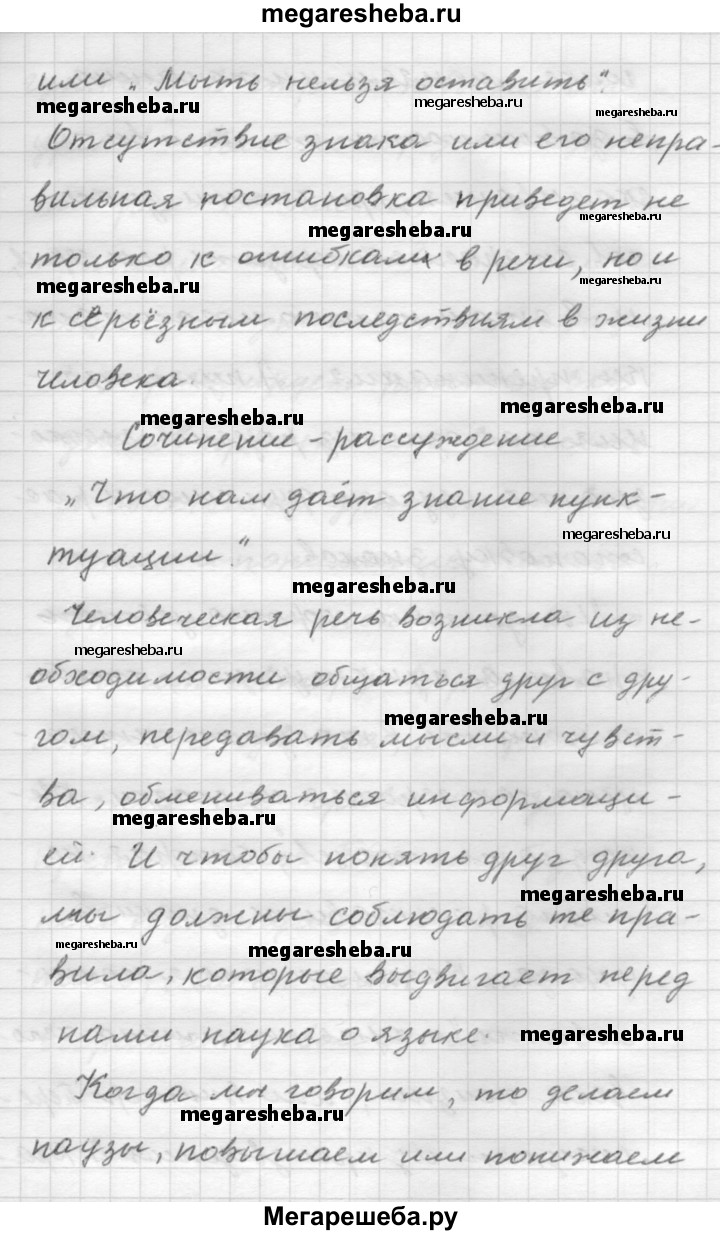 megaresheba.ru
или „Мыть нельзя оставить".
megaresheba.ru megaresheba.ru megaresheba.ru
Отсутствие знака или его непра-
вильная постановка приведет не
megaresheba.ru megaresheba.ru
только к ошибкам в речи, но и
megaresheba.ru megaresheba.ru
к серьёзным последствиям в жизни
человека.
megaresheba.ru megaresheba.ru
Сочинение-рассуждение
„Что нам даёт знание пунк-
megaresheba.ru
туации".
megaresheba.ru
Человеческая речь возникла из не-
megaresheba.ru
обходимости общаться друг с дру-
megaresheba.ru
гом, передавать мысли и чувст-
ва, обмениваться информаци-
megaresheba.ru
ей. И чтобы понять друг друга,
megaresheba.ru
мы должны соблюдать те пра-
megaresheba.ru megaresheba.ru
вила, которые выдвигает перед
нами наука о языке.
megaresheba.ru
Когда мы говорим, то делаем
megaresheba.ru
паузы, повышаем или понижаем
Мегарешеба.ру